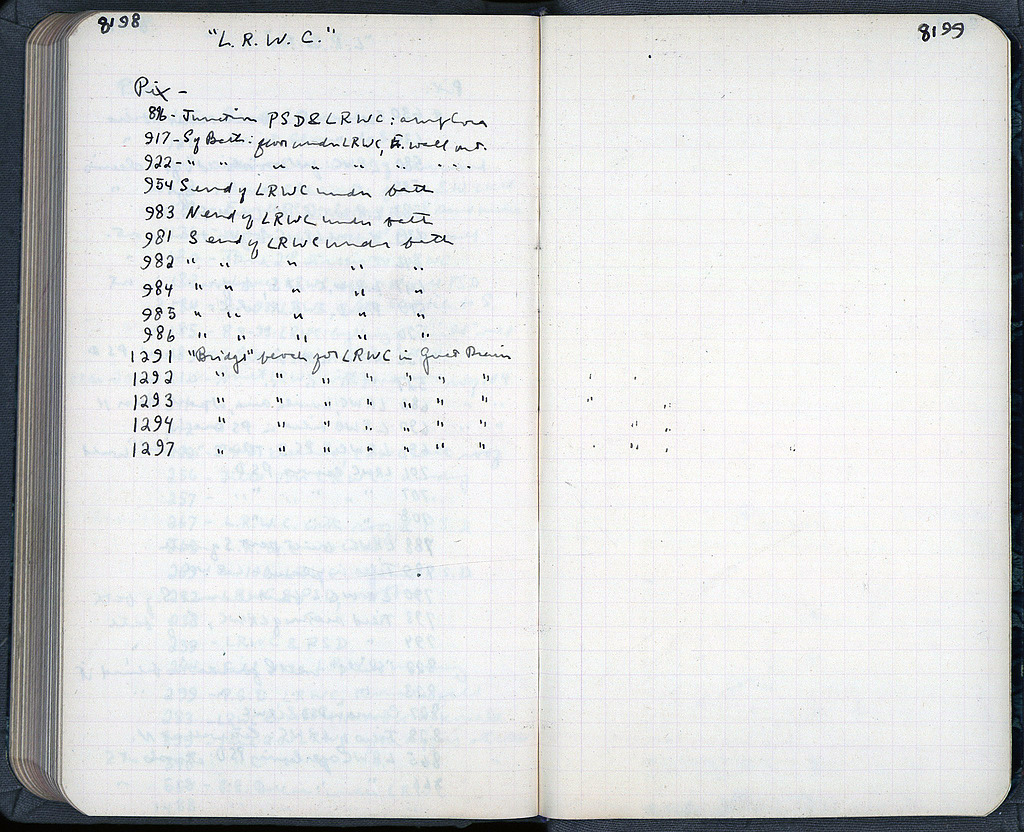 8198
8199
"L. R. W. C."
Pix -
896- Junction PSD & LRWC:
917- Sq Bath: floor under LRWC, E. wall
922- " " " " " " "
954 S end of LRWC under bath
983 N end of LRWC under bath
981 S end of LRWC under bath
982 " " " " "
984 " " " " "
985 " " " "
986 " " " "
1291 "Bridge" for LRWC in Great Drain
1292 " " " " " " "
1293 " " " " " " "
1294 " " " " " " "
1297 " " " " " " "